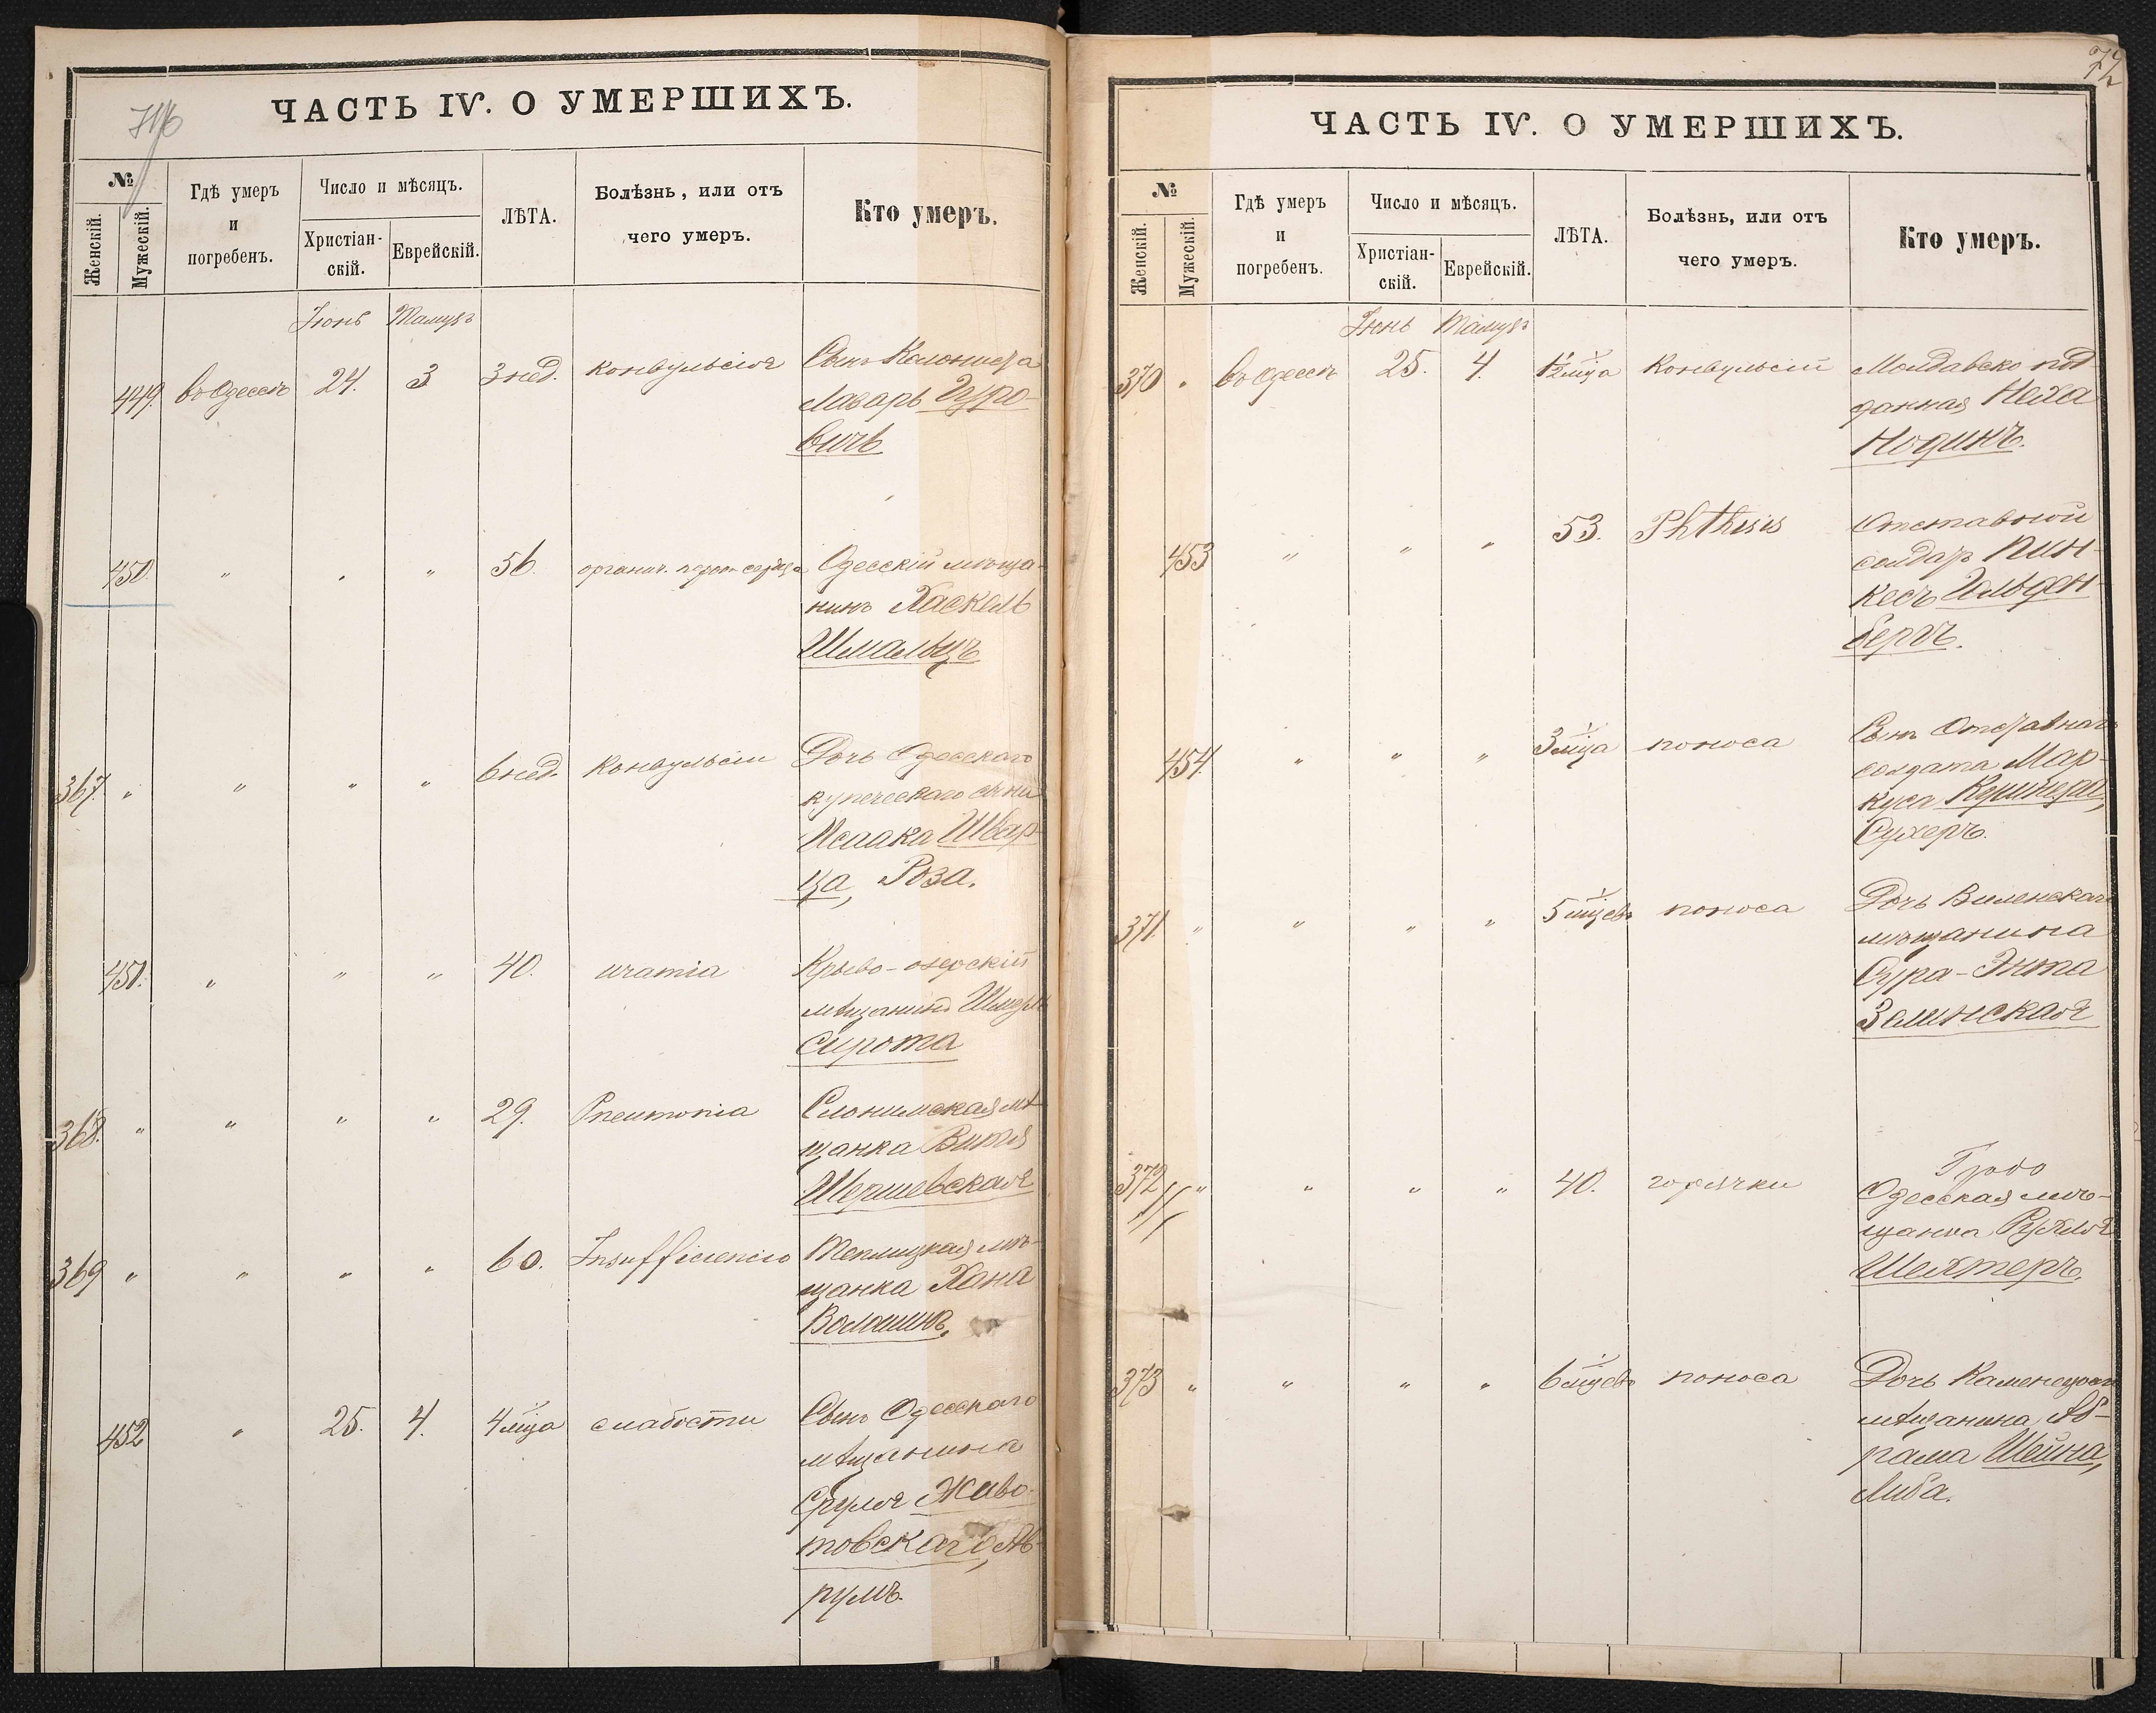 746
ЧАСТЬ IV. О УМЕРШИХЪ.
№
Женскій.
Мужескій.
Гдѣ умеръ
и
погребенъ.
Число и мѣсяцъ.
Христіан-
скій.
Еврейскій.
ЛѢТА.
Болѣзнь, или отъ
чего умеръ.
Кто умеръ.
Іюнь Тамузъ
449. въ Одессѣ 24. 3 3 нед. конвульсія Сынъ Колониста
Лазарь Гуро-
вичъ
450 " " " 56. органич. порок сердца Одесскій мѣща-
нинъ Хаскель
Шмальцъ
367. " " " " 6 нед. конвульсіи Дочь Одесскаго
купеческаго сына
Исаака Швар-
ца, Роза.
451. " " " 40. uramia Криво-озерскій
мѣщанинъ Шмерль
Сирота
368. " " " " 29. Pneumonia Слонимская мѣ-
щанка Витя
Шершевская
369 " " " " 60. Insufficiencio Теплицкая мѣ-
щанка Хана
Волошинъ.
452 " 25. 4. 4 мца слабости Сынъ Одесскаго
мѣщанина
Сруля Живо-
товскаго, Ав-
румъ.
72
ЧАСТЬ IV. О УМЕРШИХЪ.
№
Женскій.
Мужескій.
Гдѣ умеръ
и
погребенъ.
Число и мѣсяцъ.
Христіан-
скій.
Еврейскій.
ЛѢТА.
Болѣзнь, или отъ
чего умеръ.
Кто умеръ.
Іюнь Тамузъ
370 " въ Одессѣ 25. 4. 1½ мца конвульсій Молдавско под-
данная Неха
Нодинъ.
453 " " " 53. Phthisis Отставной
солдат Пин-
кесъ Гольден-
бергъ.
454. " " " 3 мца поноса Сынъ Отставнаго
солдата Мар-
куса
Сухеръ.
371. " " " " 5 мцевъ поноса Дочь Виленскаго
мѣщанина
Сура-Энта
Заминская
372 " " " " 40. горячки Одесская мѣ-
щанка Рухля
Шехтеръ.
373 " " " " 6 мцевъ поноса Дочь Каменецкаго
мѣщанина Аб-
рама Шейна,
Либа.